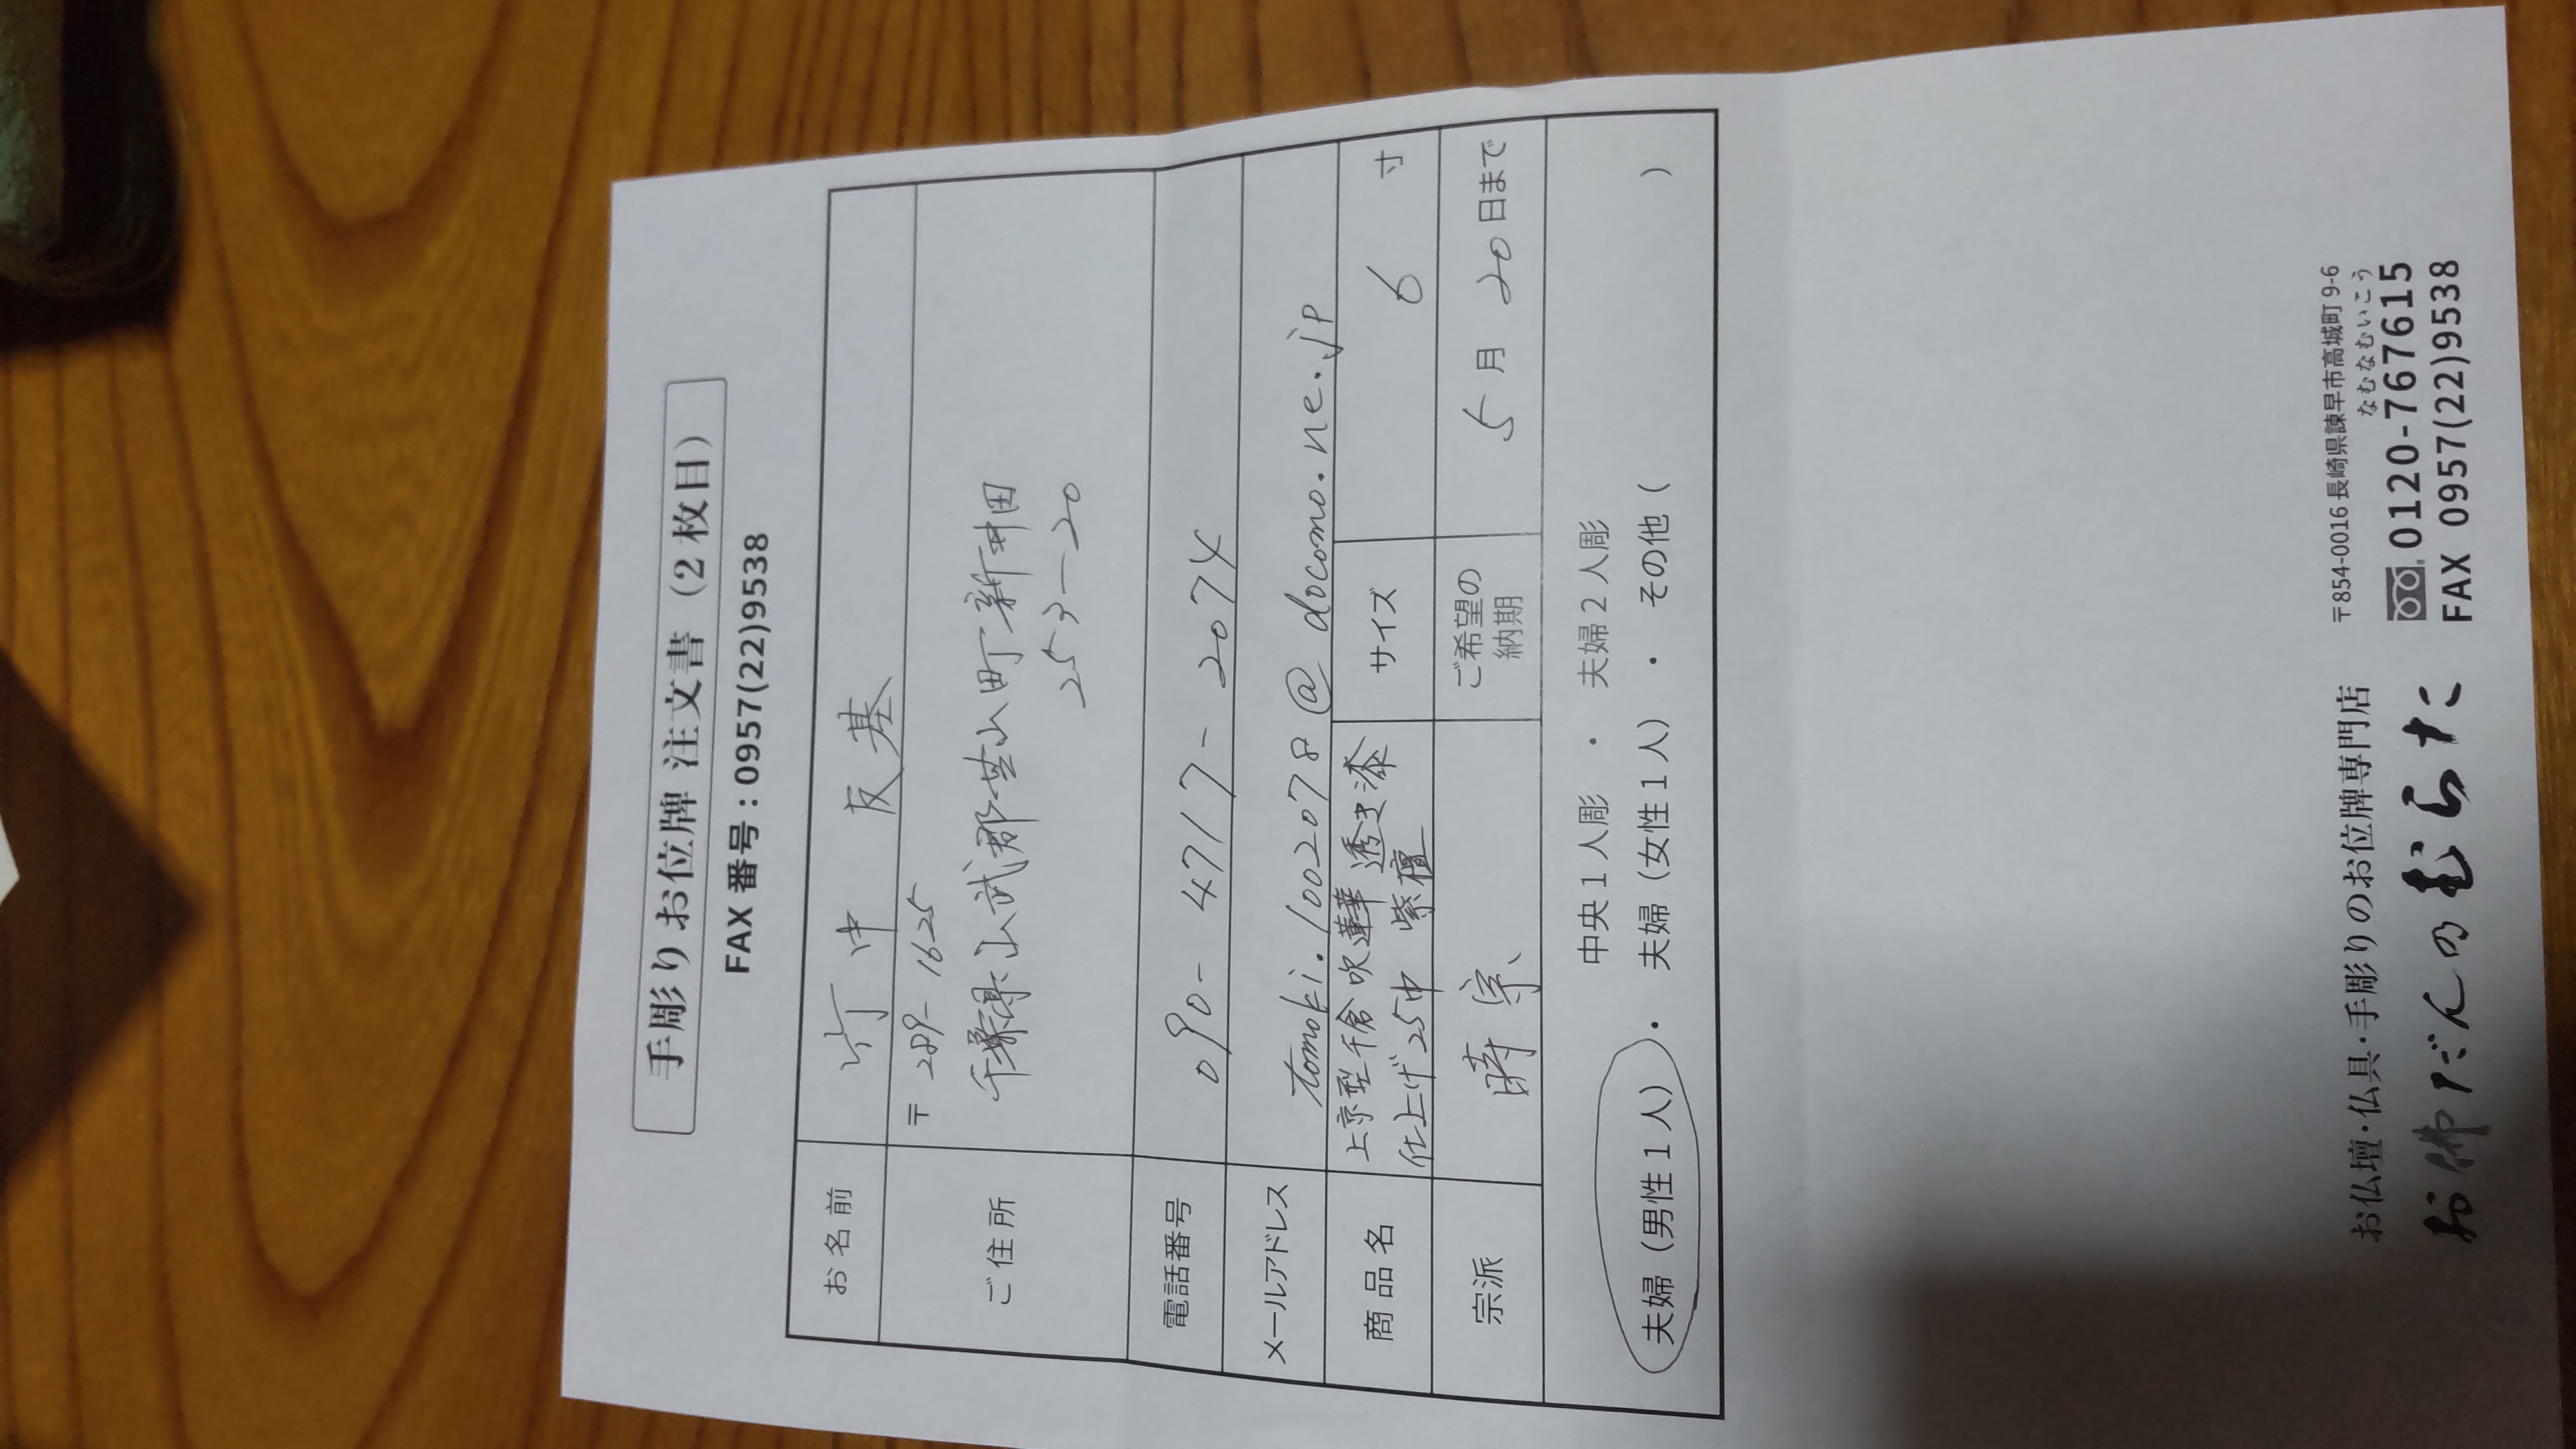 手彫りお位牌 注文書（2枚目）
FAX 番号：0957(22)9538
お名前 竹中 友基
ご住所 〒 289-1625
千葉県山武郡芝山町新井田
253-20
電話番号 090-4717-2074
メールアドレス tomoki.1002078@docomo.ne.jp
商品名 上京型千倉吹蓮華 透き漆
仕上げ 25中 紫檀
サイズ 6 寸
宗派 時宗
ご希望の
納期 5月20日まで
中央1人彫 ・ 夫婦2人彫
夫婦（男性1人）・ 夫婦（女性1人） ・ その他（ ）
お仏壇・仏具・手彫りのお位牌専門店
お佛だんのむらた
〒854-0016 長崎県諫早市高城町 9-6
なむなむいこう
0120-767615
FAX 0957(22)9538